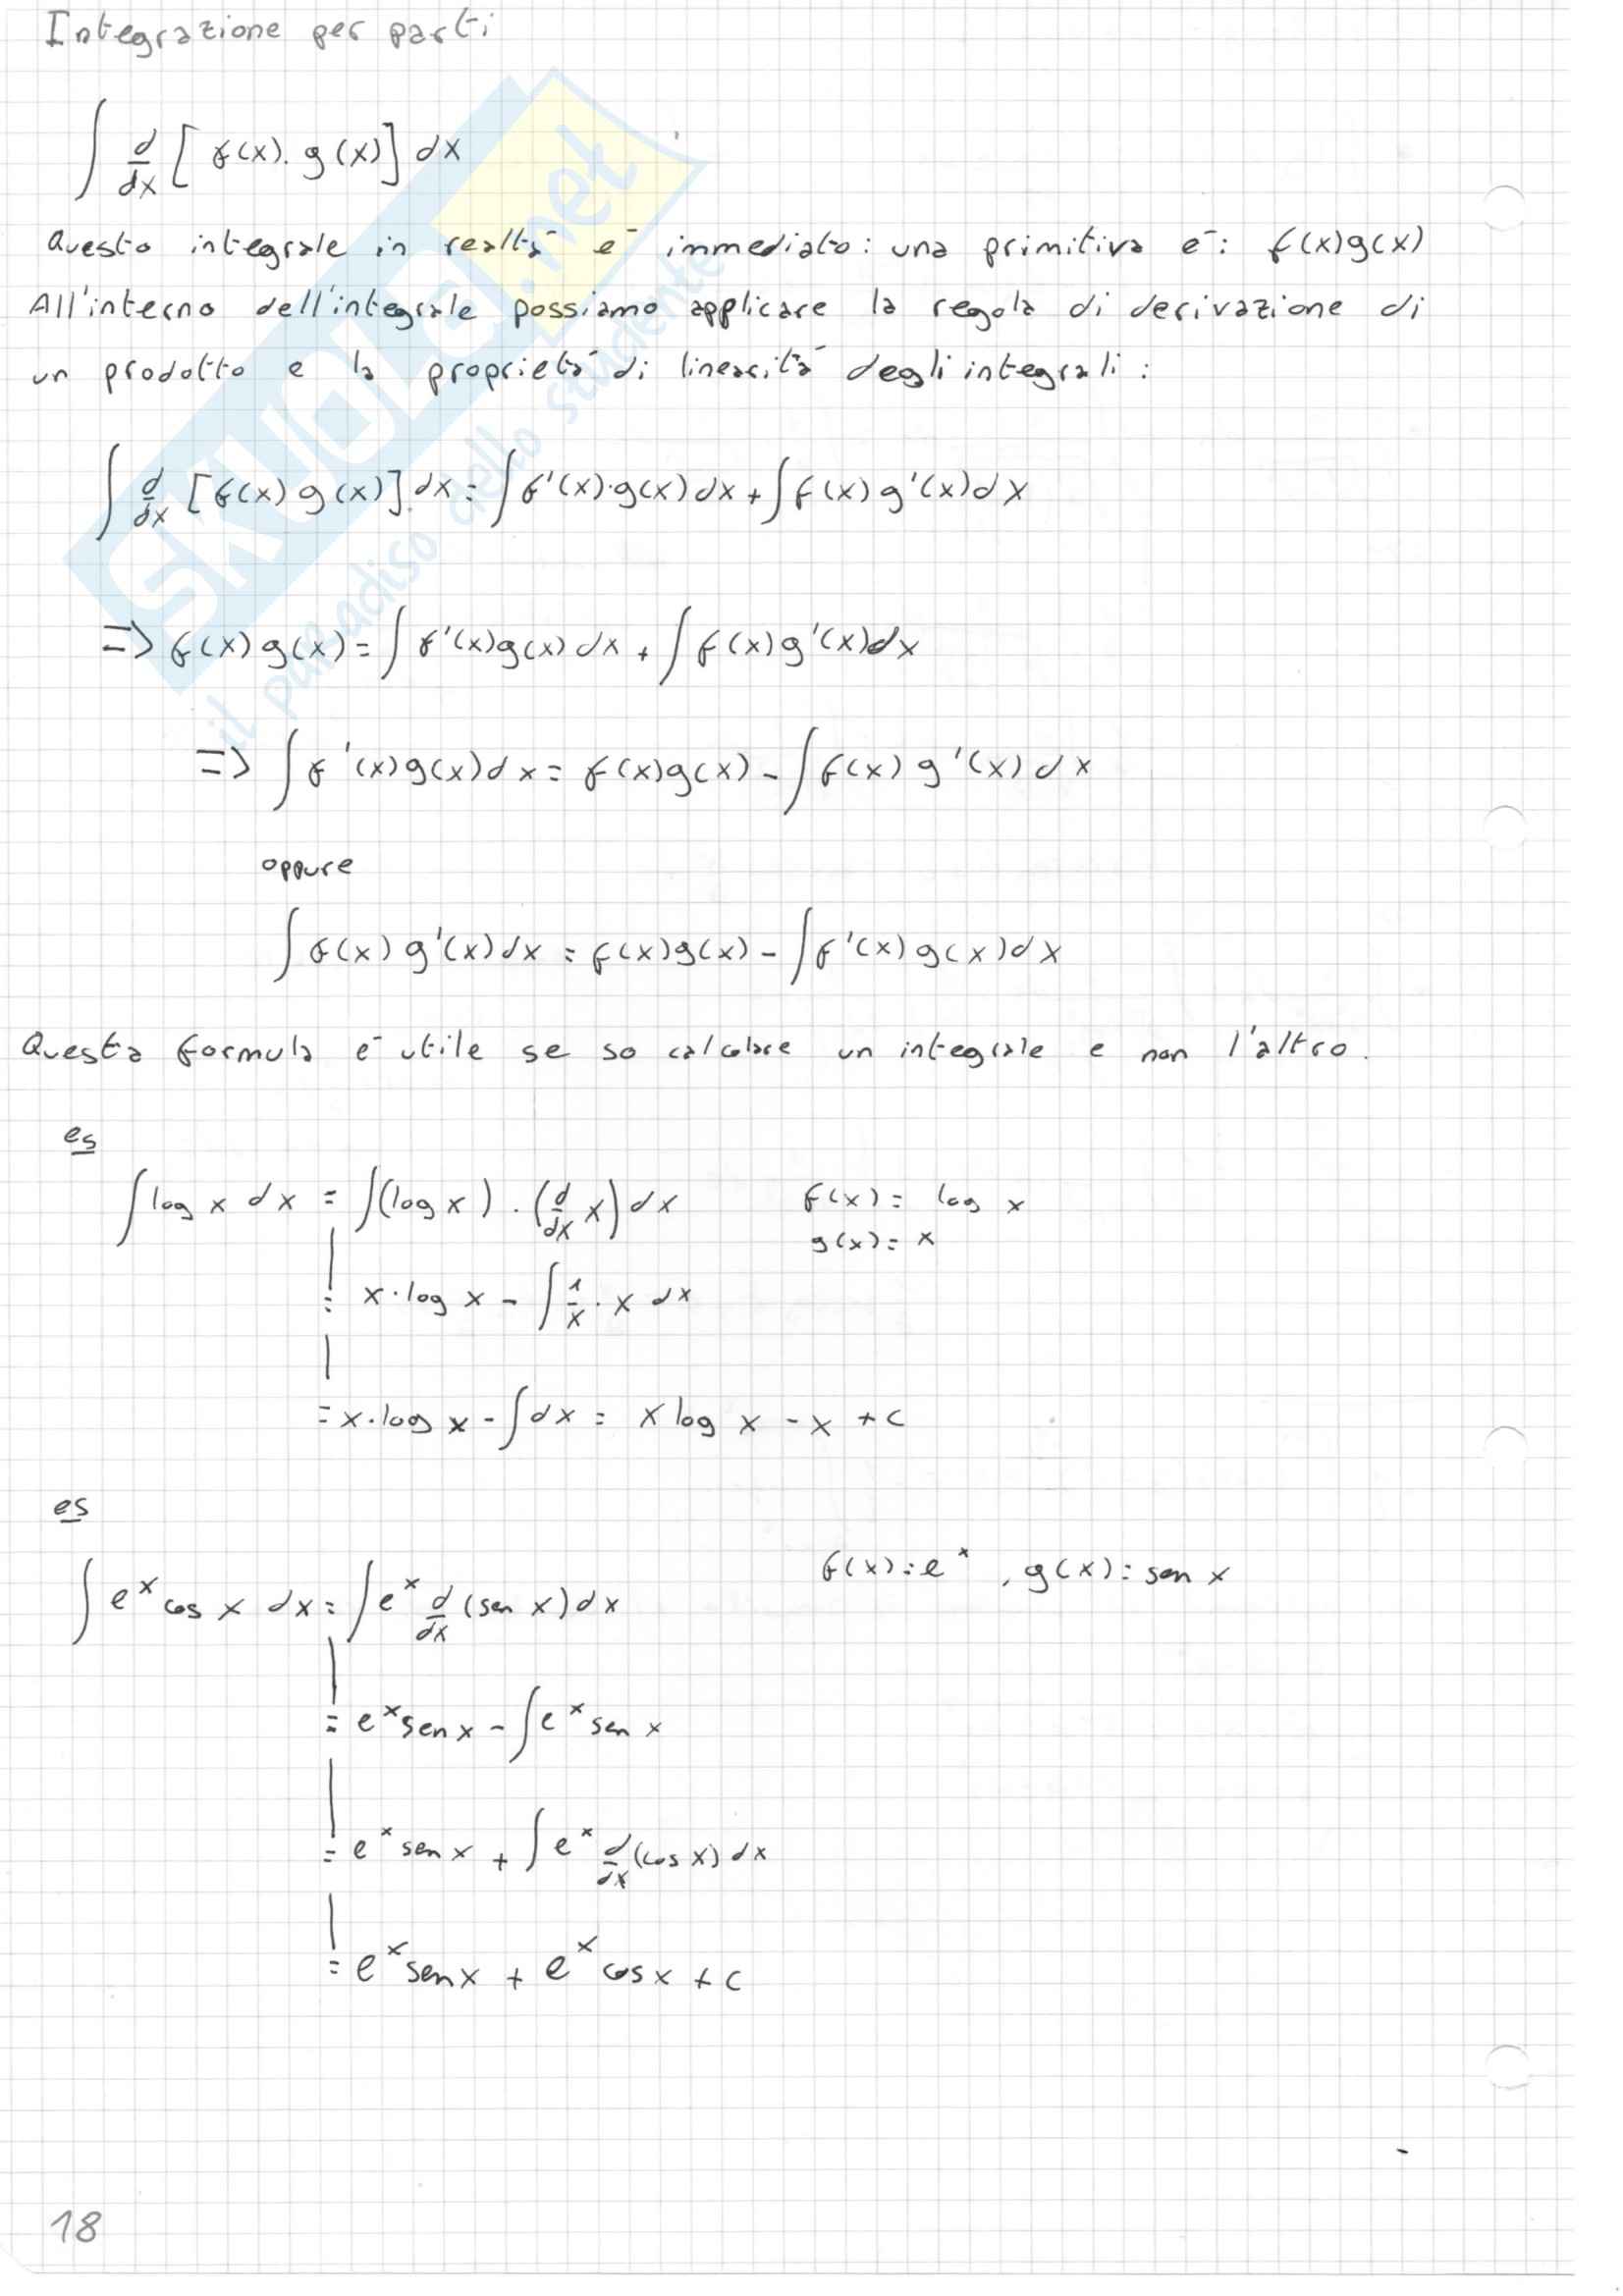 Integrazione per parti
∫ d/dx [f(x)·g(x)] dx
Questo integrale in realtà è immediato: una primitiva è: f(x)g(x)
All'interno dell'integrale possiamo applicare la regola di derivazione di
un prodotto e la proprietà di linearità degli integrali:
∫ d/dx [f(x) g(x)] dx = ∫ f'(x)·g(x) dx + ∫ f(x) g'(x) dx
=> f(x) g(x) = ∫ f'(x) g(x) dx + ∫ f(x) g'(x) dx
=> ∫ f'(x) g(x) dx = f(x) g(x) - ∫ f(x) g'(x) dx
oppure
∫ f(x) g'(x) dx = f(x) g(x) - ∫ f'(x) g(x) dx
Questa formula è utile se so calcolare un integrale e non l'altro.
es
∫ log x dx = ∫ (log x) · (d/dx x) dx f(x) = log x
g(x) = x
= x·log x - ∫ 1/x · x dx
= x·log x - ∫ dx = x log x - x + c
es
∫ e^x cos x dx = ∫ e^x d/dx (sen x) dx f(x) = e^x, g(x) = sen x
= e^x sen x - ∫ e^x sen x
= e^x sen x + ∫ e^x d/dx (cos x) dx
= e^x sen x + e^x cos x + c
18
SKUOLA.net
il paradiso dello studente